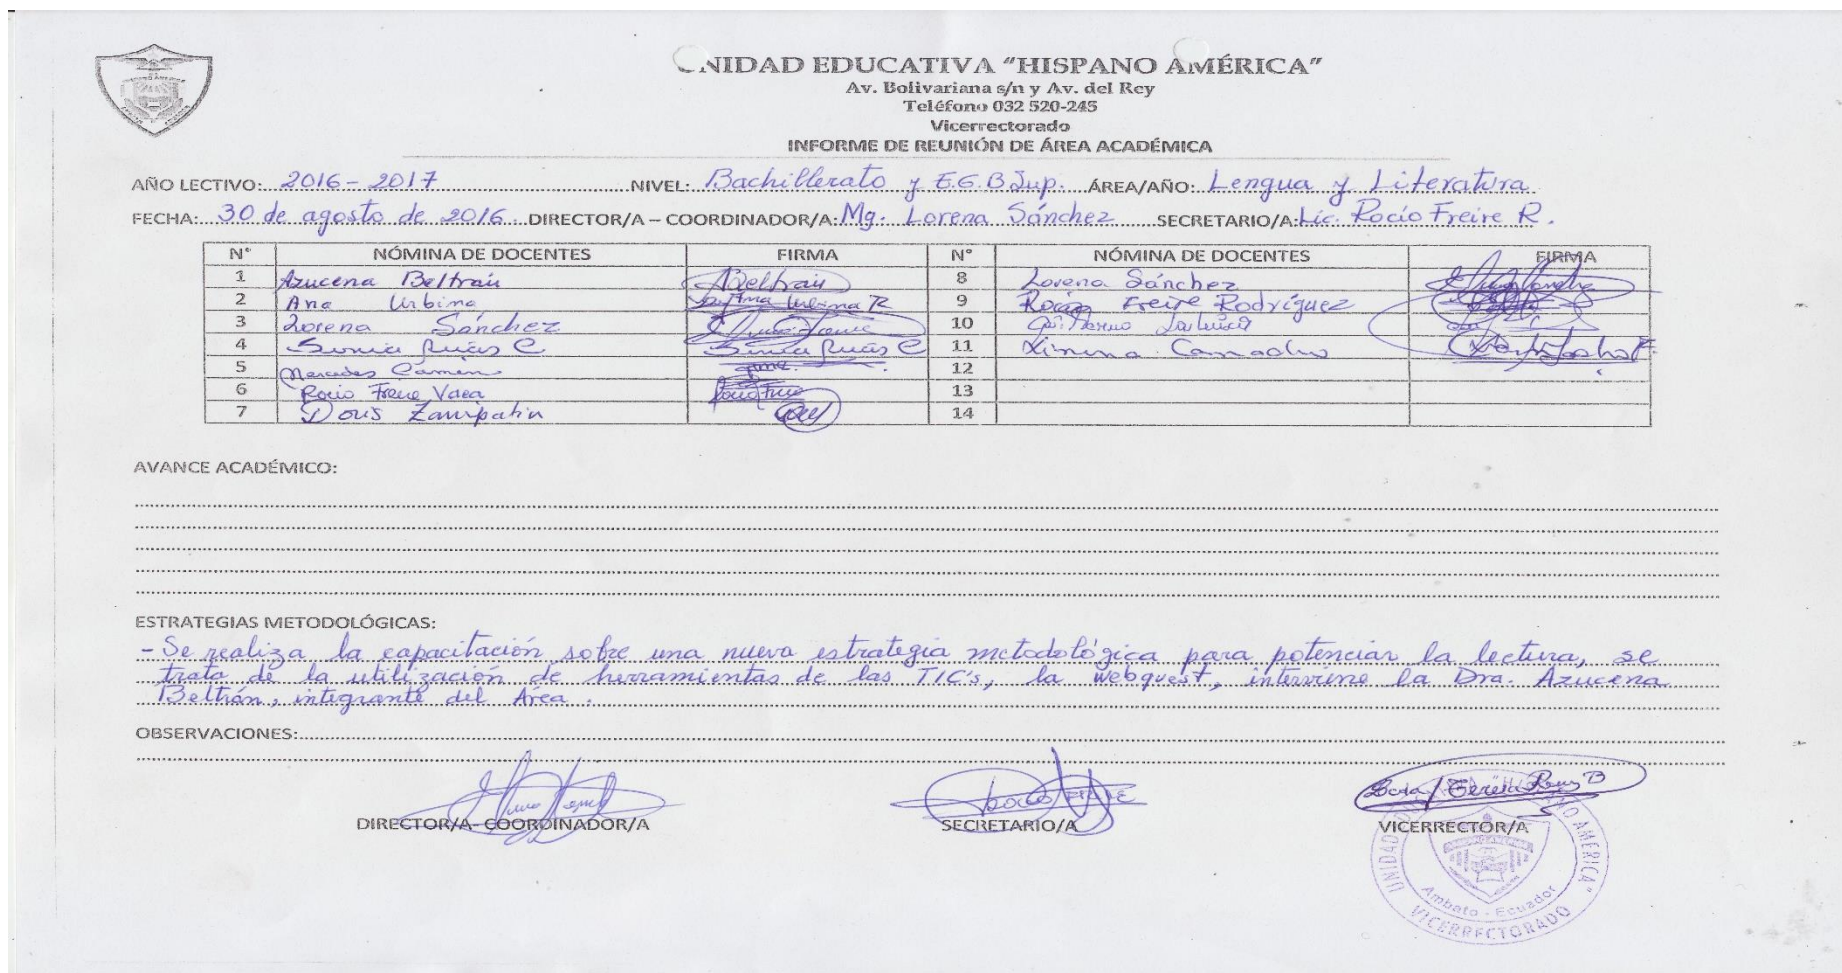 UNIDAD EDUCATIVA "HISPANO AMÉRICA"
Av. Bolivariana s/n y Av. del Rey
Teléfono 032 520-245
Vicerrectorado
INFORME DE REUNIÓN DE ÁREA ACADÉMICA
AÑO LECTIVO: 2016-2017 NIVEL: Bachillerato y E.G.B Sup. ÁREA/AÑO: Lengua y Literatura
FECHA: 30 de agosto de 2016 DIRECTOR/A – COORDINADOR/A: Mg. Lorena Sánchez SECRETARIO/A: Lic. Rocío Freire R.
N° NÓMINA DE DOCENTES FIRMA N° NÓMINA DE DOCENTES FIRMA
1 Azucena Beltrán ABeltrán 8 Lorena Sánchez
2 Ana Urbina Ana Urbina R 9 Rocío Freire Rodríguez
3 Lorena Sánchez 10
4 11
5 Mercedes 12
6 Rocio Freire Vaca Rocio Freire 13
7 Doris 14
AVANCE ACADÉMICO:
ESTRATEGIAS METODOLÓGICAS:
- Se realiza la capacitación sobre una nueva estrategia metodológica para potenciar la lectura, se
trata de la utilización de herramientas de las TIC's, la webquest, interviene la Dra. Azucena
Beltrán, integrante del Área.
OBSERVACIONES:
DIRECTOR/A- COORDINADOR/A SECRETARIO/A VICERRECTOR/A
UNIDAD "HISPANO AMERICA"
Ambato - Ecuador
VICERRECTORADO